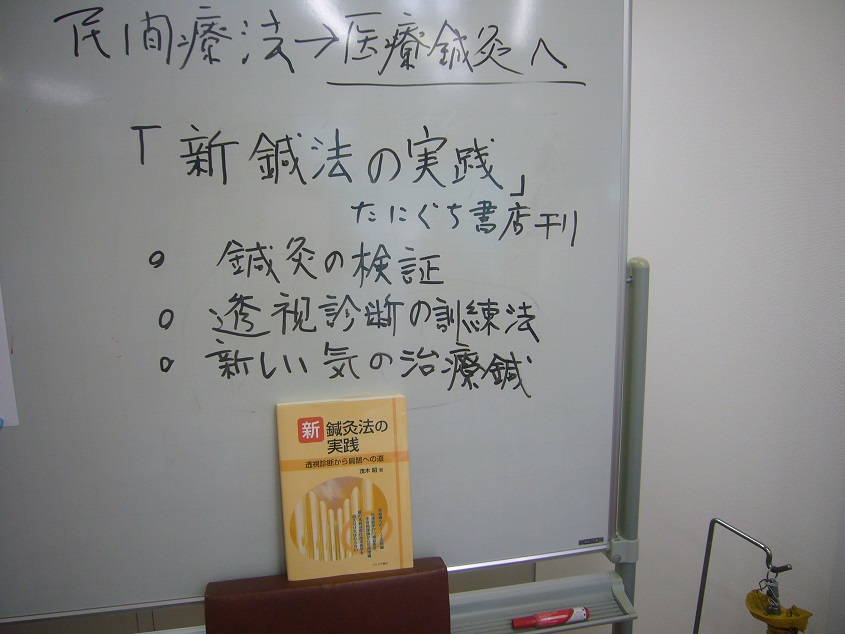 民間療法→医療鍼灸へ
「新鍼法の実践」
たにぐち書店刊
○ 鍼灸の検証
○ 透視診断の訓練法
○ 新しい気の治療鍼
新鍼灸法の
実践
透視診断から扁鵲への道
茂木 昭 著